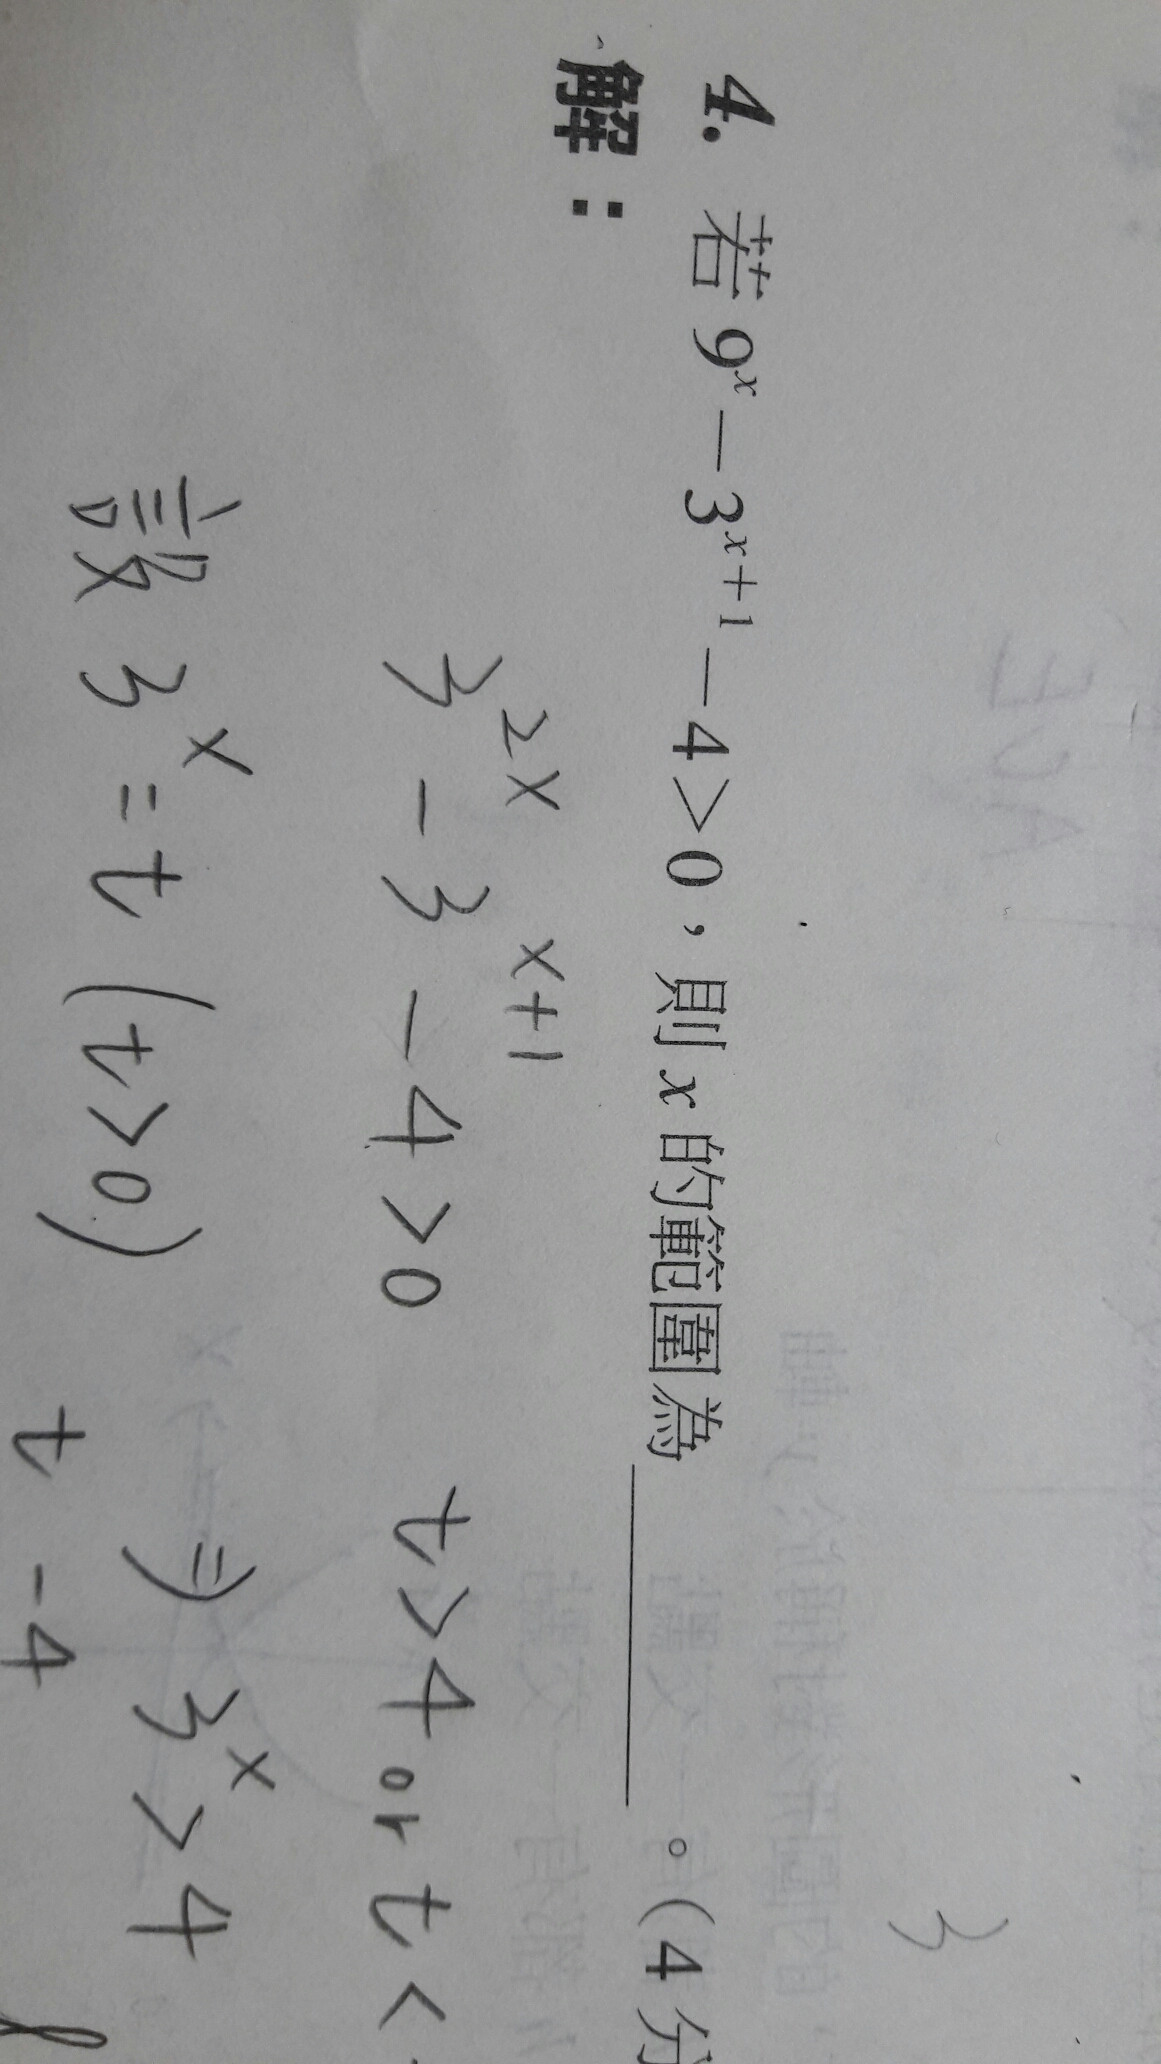 4. 若 9ˣ－3ˣ⁺¹－4＞0，則 x 的範圍為＿＿＿＿＿。(4 分
解：
3²ˣ - 3ˣ⁺¹ - 4 > 0
t > 4 or t <
設 3ˣ = t (t > 0)
⇒ 3ˣ > 4
t - 4
3